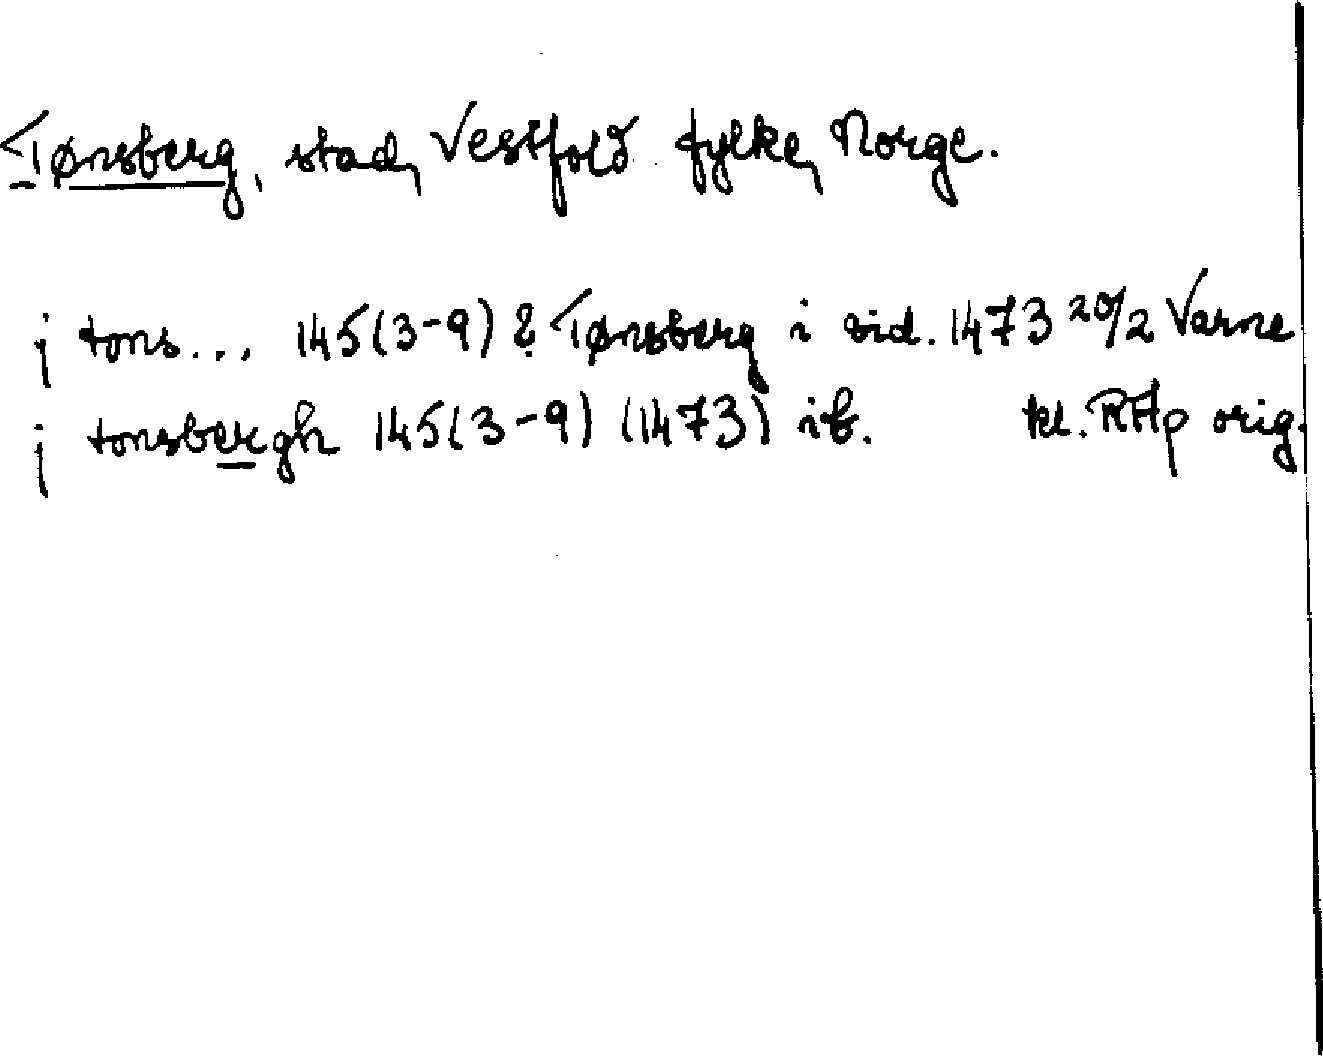 Tønsberg, stad, Vestfold fylke, Norge.
j tons... 145(3-9) ? Tønsberg i vid. 1473 20/2 Varne
j tonsbergh 145(3-9) (1473) ib. kl. RAp orig.